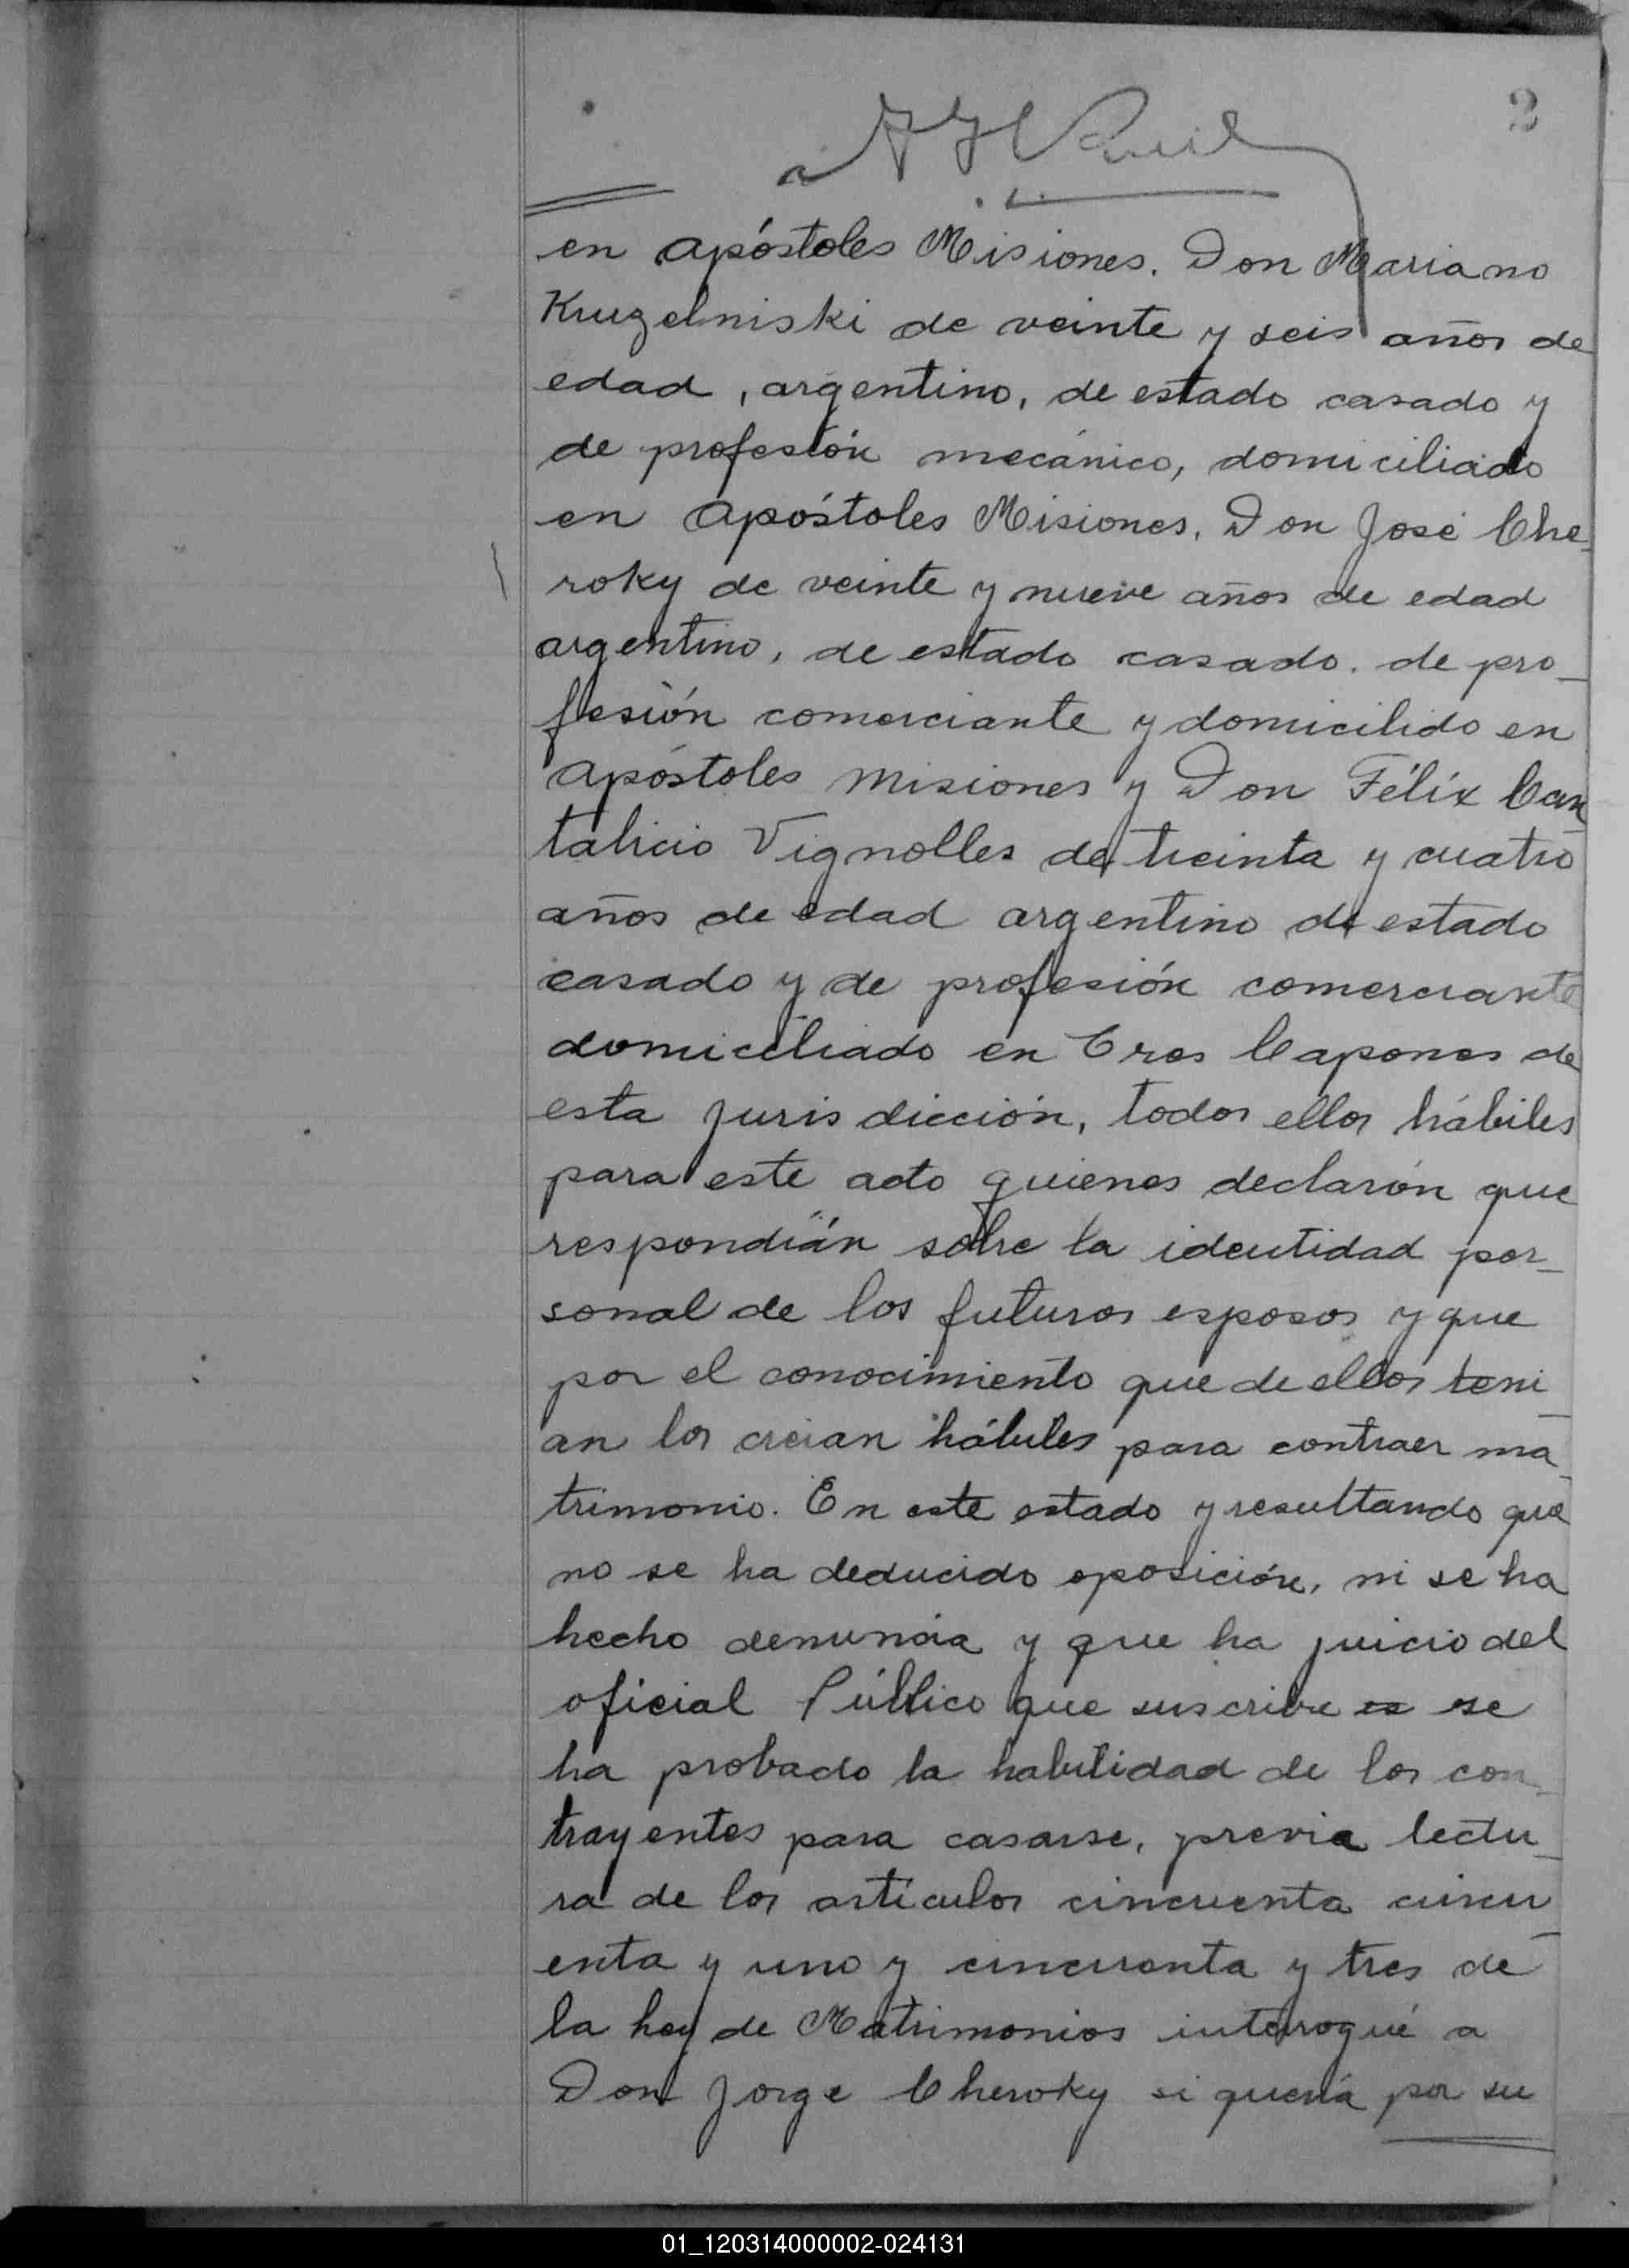 2
en Apóstoles Misiones. Don Mariano
Kruzelniski de veinte y seis años de
edad, argentino, de estado casado y
de profesión mecánico, domiciliado
en Apóstoles Misiones, Don José Che-
roky de veinte y nueve años de edad
argentino, de estado casado. de pro-
fesión comerciante y domicilido en
Apóstoles Misiones y Don Félix Can-
talicio Vignolles de treinta y cuatro
años de edad argentino de estado
casado y de profesión comerciante
domiciliado en Tres Capones de
esta jurisdicción, todos ellos hábiles
para este acto quienes declarón que
respondián sobre la identidad per-
sonal de los futuros esposos y que
por el conocimiento que de ellos teni-
an los creian hábiles para contraer ma-
trimonio. En este estado y resultando que
no se ha deducido oposición, ni se ha
hecho denuncia y que ha juicio del
oficial Público que suscribe es se
ha probado la habilidad de los con-
trayentes para casarse, previa lectu-
ra de los artículos cincuenta cincu-
enta y uno y cincuenta y tres de
la Ley de Matrimonios interrogué a
Don Jorge Cheroky si quería por su
01_120314000002-024131